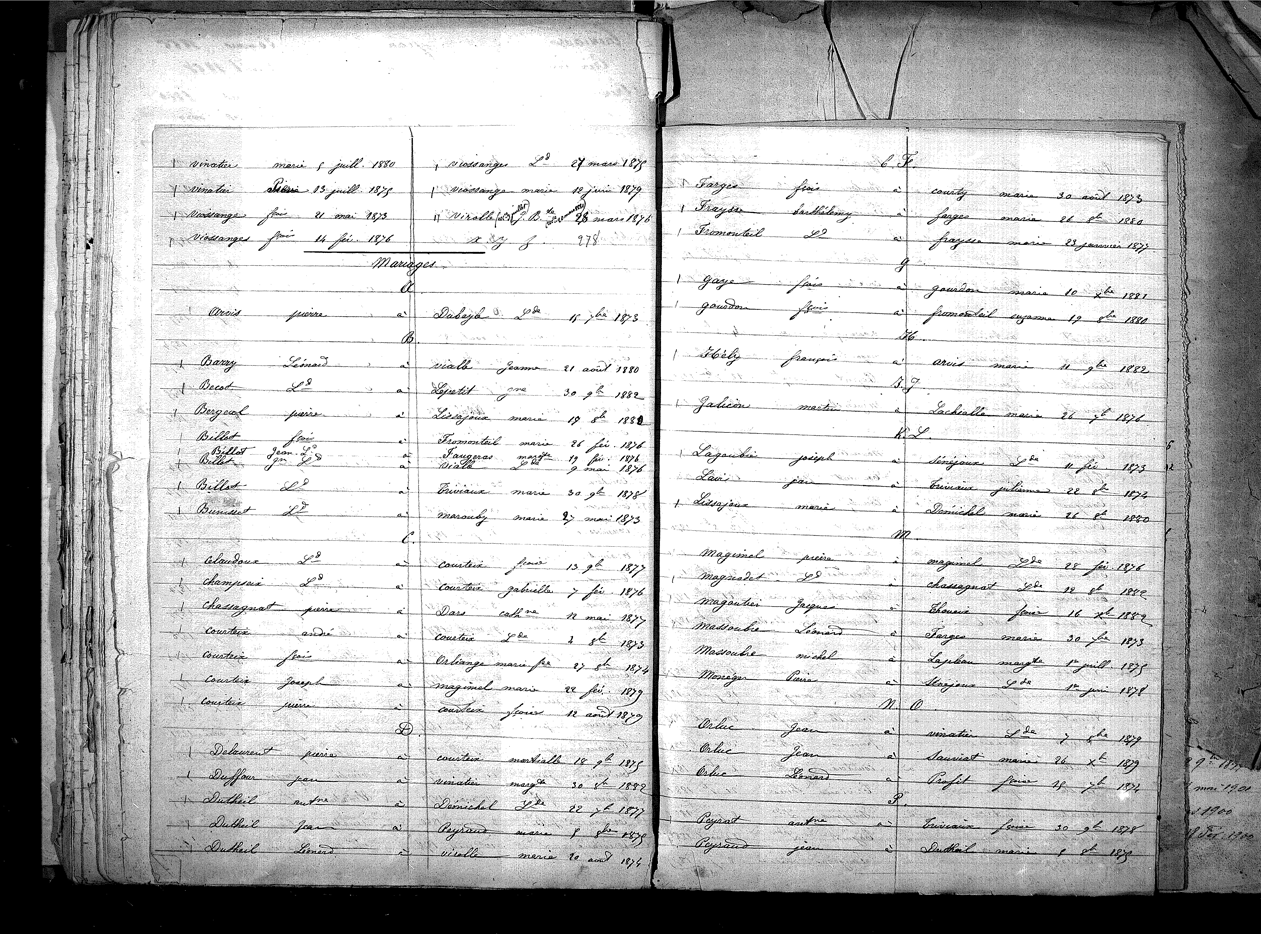 vinatier marie 5 juill. 1880
vinatier Pierre 13 juill. 1875
viossange frois 21 mai 1873
viossanges frois 14 fév. 1876
viossanges Ld 27 mars 1875
viossange marie 12 juin 1879
virolle J. B. te 28 mars 1876
x. y z. 278
Mariages.
A
Arvis pierre à Dubayle Lde 15 7bre 1873
B.
Barry Léonard à vialle Jeanne 21 août 1880
Becot Ld à Lepetit gne 30 9b 1882
Bergeal pierre à Lissajoux marie 19 8b 1882
Billot frois à Fromonteil marie 26 fév. 1876
Billot Jean Ld à Faugeras margte 19 fév. 1876
Billot gn Ld à vialle Lde 9 mai 1876
Billot Ld à Triviaux marie 30 9b 1878
Bunisset Ld à marouby marie 27 mai 1873
C.
Celaudoux Ld à courteix froise 13 9b 1877
champseix Ld à courteix gabrielle 7 fév 1876
chassagnat pierre à Dars cathne 12 mai 1877
courteix andré à courteix Lde 2 8b 1873
courteix frois à Orliange marie fse 27 8b 1874
courteix Joseph à magimel marie 22 fév. 1879
courteix pierre à courteix froise 12 août 1879
D
Delaurent pierre à courteix martialle 18 9b 1875
Duffour jean à vinatier margte 30 8b 1882
Dutheil antne à Démichel Lde 22 7b 1877
Dutheil Jean à Peyraud marie 5 8bre 1875
Dutheil Léonard à virolle marie 20 août 1874
E. F.
Farges frois à courty marie 30 août 1873
Fraysse barthélemy à farges marie 26 8b 1880
Fromonteil Ld à fraysse marie 23 janvier 1877
G
gaye frois à gourdon marie 10 xbre 1881
gourdon frois à fromonteil suzanne 19 8bre 1880
H.
Hély françois à arvis marie 11 9bre 1882
I J
Jalicon martin à Lachialle marie 26 7b 1876
K L
Lagoubie joseph à Sénéjoux Lde 11 fév 1873
Lavis jean à Triviaux julienne 22 8b 1872
Lissajoux marie à Demichel marie 26 8b 1880
M
Magimel pierre à magimel Lde 28 fév 1876
magnadet Ld à chassagnat Lde 12 8b 1882
magoutier Jacques à Thoueix froise 16 xb 1882
Massoubre Léonard à Farges marie 30 7bre 1873
Massoubre michel à Lapleau margte 1er juill. 1875
Monéger Pierre à Lde 1er juin 1878
N. O
Orluc Jean à vinatier Lde 7 8bre 1879
Orluc Jean à Sauviat marie 26 xb 1879
Orluc Léonard à Profit froise 25 7b 1874
P
Peyrat antne à Triviaux froise 30 9b 1878
Peyraud jean à Dutheil marie 5 8b 1875
mai 1901
1900
1900